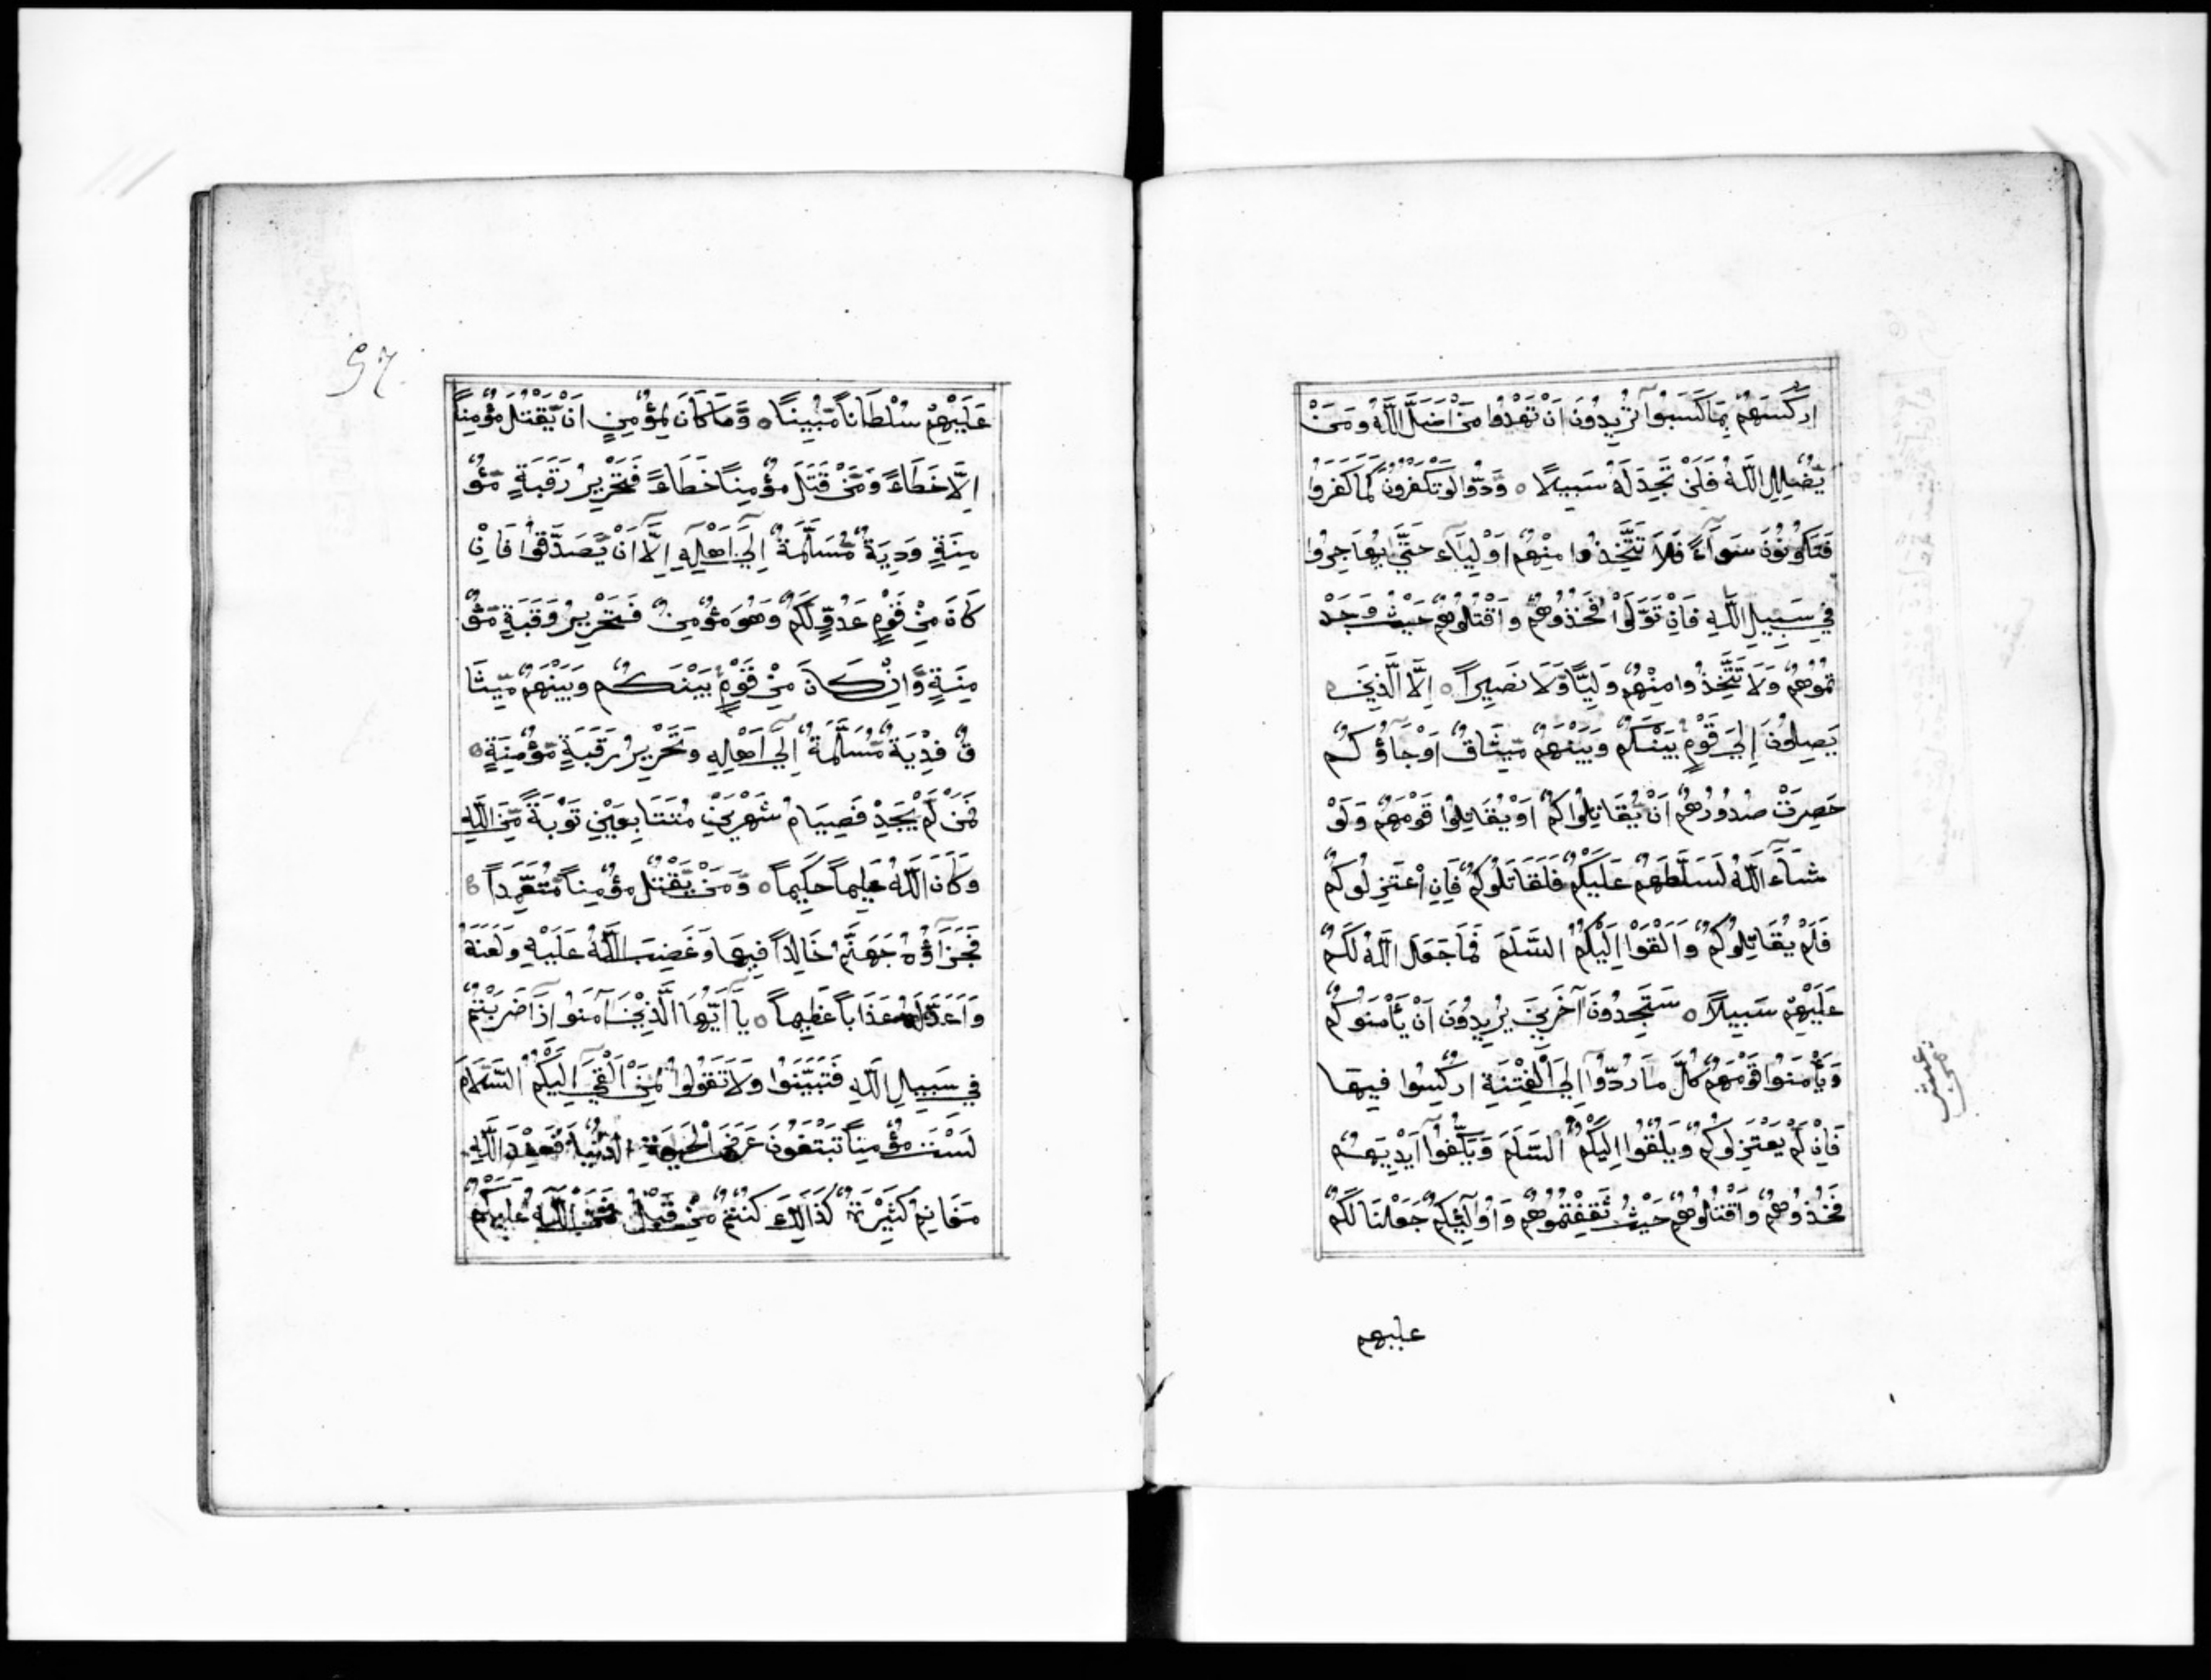 اَرْكَسَهُمْ بِمَا كَسَبُوٓا تُرِيدُونَ اَنْ تَهْدُوا مَنْ اَضَلَّ اللّٰهُ وَمَنْ
يُّضْلِلِ اللّٰهُ فَلَنْ تَجِدَ لَهُ سَبِيلًا ○ وَدُّوا لَوْ تَكْفُرُونَ كَمَا كَفَرُوا
فَتَكُونُونَ سَوَآءً فَلَا تَتَّخِذُوا مِنْهُمْ اَوْلِيَآءَ حَتّٰى يُهَاجِرُوا
فِي سَبِيلِ اللّٰهِ فَاِنْ تَوَلَّوْا فَخُذُوهُمْ وَاقْتُلُوهُمْ حَيْثُ وَجَدْ
تُمُوهُمْ وَلَا تَتَّخِذُوا مِنْهُمْ وَلِيًّا وَّلَا نَصِيرًا ○ اِلَّا الَّذِينَ
يَصِلُونَ اِلَى قَوْمٍ بَيْنَكُمْ وَبَيْنَهُمْ مِّيثَاقٌ اَوْ جَآؤُكُمْ
حَصِرَتْ صُدُورُهُمْ اَنْ يُّقَاتِلُوكُمْ اَوْ يُقَاتِلُوا قَوْمَهُمْ وَلَوْ
شَآءَ اللّٰهُ لَسَلَّطَهُمْ عَلَيْكُمْ فَلَقَاتَلُوكُمْ فَاِنِ اعْتَزِلُوكُمْ
فَلَمْ يُقَاتِلُوكُمْ وَاَلْقَوْا اِلَيْكُمُ السَّلَمَ فَمَا جَعَلَ اللّٰهُ لَكُمْ
عَلَيْهِمْ سَبِيلًا ○ سَتَجِدُونَ آخَرِينَ يُرِيدُونَ اَنْ يَّأْمَنُوكُمْ
وَيَأْمَنُوا قَوْمَهُمْ كُلَّ مَا رُدُّوٓا اِلَى الْفِتْنَةِ اُرْكِسُوا فِيهَا
فَاِنْ لَمْ يَعْتَزِلُوكُمْ وَيُلْقُوا اِلَيْكُمُ السَّلَمَ وَيَكُفُّوٓا اَيْدِيَهُمْ
فَخُذُوهُمْ وَاقْتُلُوهُمْ حَيْثُ ثَقِفْتُمُوهُمْ وَاُولٰٓئِكُمْ جَعَلْنَا لَكُمْ
عليهم
عَلَيْهِمْ سُلْطَانًا مُّبِينًا ○ وَّمَا كَانَ لِمُؤْمِنٍ اَنْ يَّقْتُلَ مُؤْمِنًا
اِلَّا خَطَاءً وَمَنْ قَتَلَ مُؤْمِنًا خَطَاءً فَتَحْرِيرُ رَقَبَةٍ مُّؤْ
مِنَةٍ وَدِيَةٌ مُّسَلَّمَةٌ اِلٰٓى اَهْلِهِ اِلَّآ اَنْ يَّصَّدَّقُوا فَاِنْ
كَانَ مِنْ قَوْمٍ عَدُوٍّ لَّكُمْ وَهُوَ مُؤْمِنٌ فَتَحْرِيرُ رَقَبَةٍ مُّؤْ
مِنَةٍ وَّاِنْ كَانَ مِنْ قَوْمٍ بَيْنَكُمْ وَبَيْنَهُمْ مِّيثَا
قٌ فِدْيَةٌ مُّسَلَّمَةٌ اِلٰٓى اَهْلِهِ وَتَحْرِيرُ رَقَبَةٍ مُّؤْمِنَةٍ ○
فَمَنْ لَمْ يَجِدْ فَصِيَامُ شَهْرَيْنِ مُتَتَابِعَيْنِ تَوْبَةً مِّنَ اللّٰهِ
وَكَانَ اللّٰهُ عَلِيمًا حَكِيمًا ○ وَّمَنْ يَّقْتُلْ مُؤْمِنًا مُّتَعَمِّدًا
فَجَزَآؤُهُ جَهَنَّمُ خَالِدًا فِيهَا وَغَضِبَ اللّٰهُ عَلَيْهِ وَلَعَنَهُ
وَاَعَدَّ لَهُ عَذَابًا عَظِيمًا ○ يَآ اَيُّهَا الَّذِينَ آمَنُوٓا اِذَا ضَرَبْتُمْ
فِي سَبِيلِ اللّٰهِ فَتَبَيَّنُوا وَلَا تَقُولُوا لِمَنْ اَلْقٰٓى اِلَيْكُمُ السَّلَامَ
لَسْتَ مُؤْمِنًا تَبْتَغُونَ عَرَضَ الْحَيٰوةِ الدُّنْيَا فَعِنْدَ اللّٰهِ
مَغَانِمُ كَثِيْرَةٌ كَذَالِكَ كُنْتُمْ مِّنْ قَبْلُ فَمَنَّ اللّٰهُ عَلَيْكُمْ